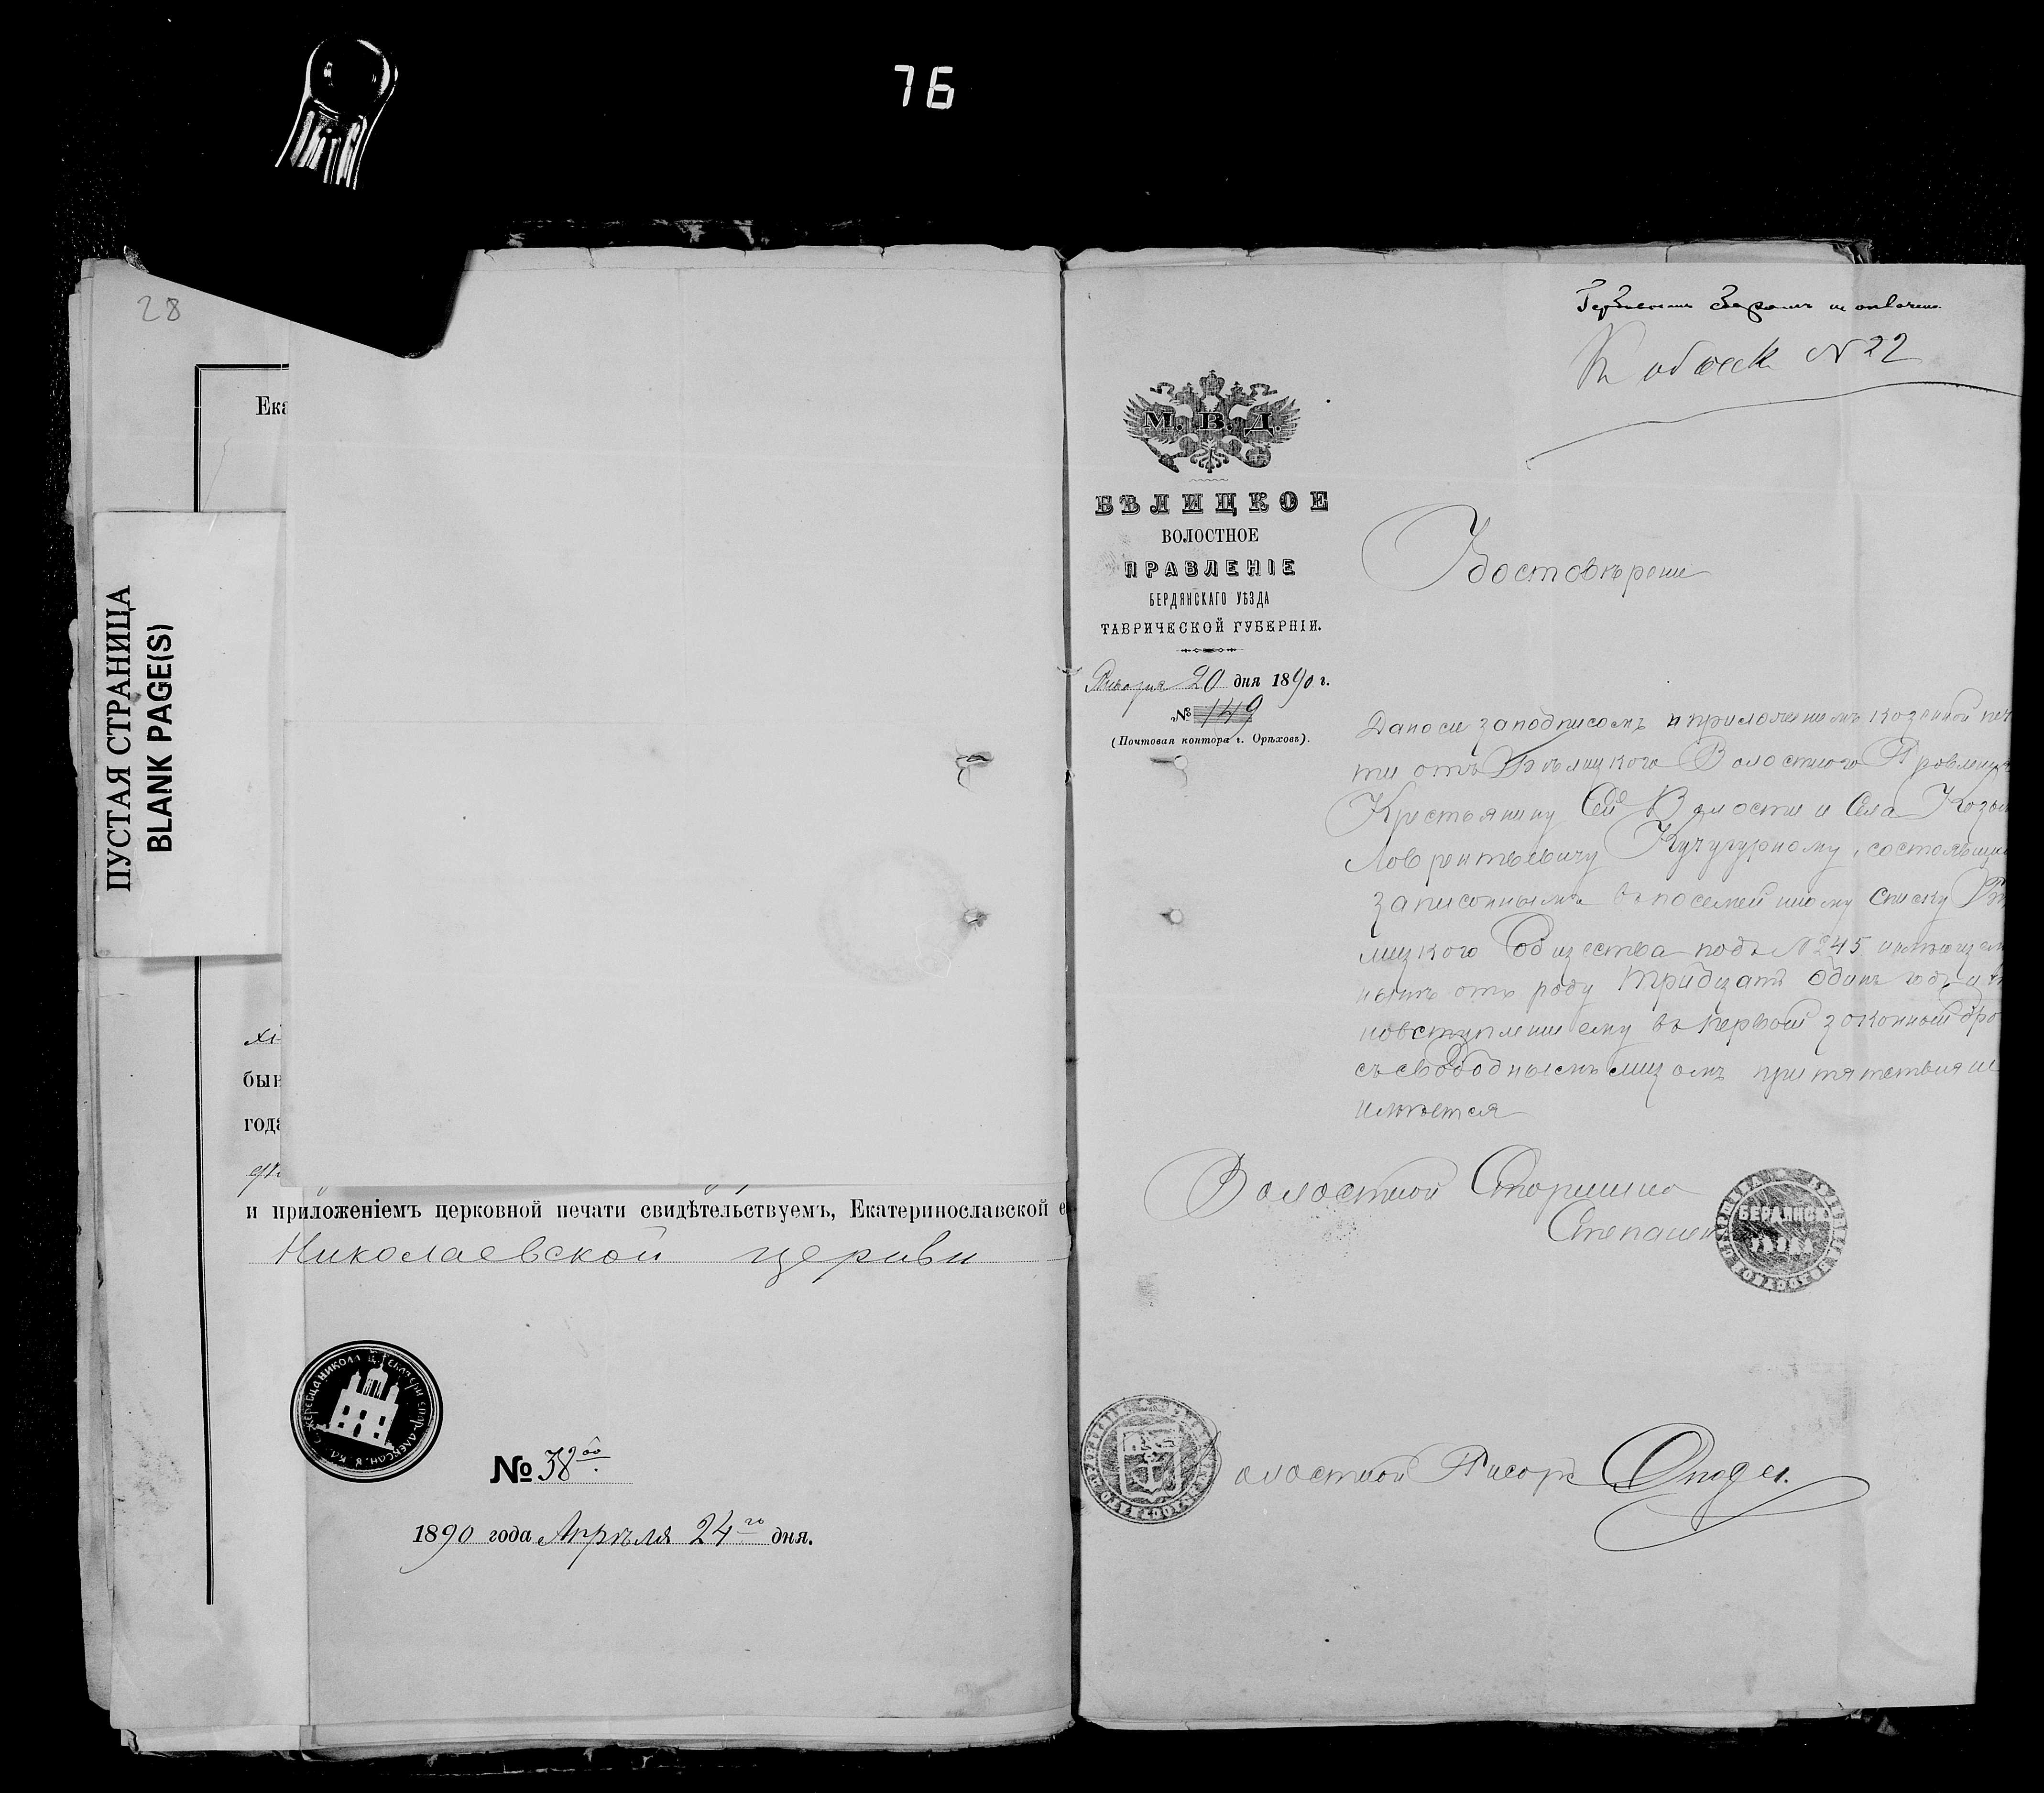 76
28
Ека
ПУСТАЯ СТРАНИЦА
BLANK PAGE(S)
бы
года
и приложеніемъ церковной печати свидѣтельствуемъ, Екатеринославской е
Николаевской церкви
№ 38
1890 года Апрѣля 24го дня.
Гербовымъ Сборомъ не оплачено.
К обыск №22
М. В. Д.
БѢЛИЦКОЕ
ВОЛОСТНОЕ
ПРАВЛЕНІЕ
БЕРДЯНСКАГО УѢЗДА
ТАВРИЧЕСКОЙ ГУБЕРНІИ.
Января 20 дня 1890 г.
№ 149
(Почтовая контора г. Орѣховъ).
Удостовѣрени
Дано сіе за подписомъ и приложеніемъ козенной печ
ти отъ Бѣлицкого Волостного Провленія
Крестьянину Сей Волости и Села Козьм
Лаврентьевичу Кучугурному, состоящи
записоннымъ въ посемейному списку Бѣ
лицкого Общества подъ №245 имѣющем
нынѣ отъ роду тридцать одинъ годъ,
повступленіи ему въ первый законный бра
съ свободнымъ лицомъ препятствія не
имѣется
Волостной Старшина
Степанен
БЕРДЯНСК
УѢЗДА
Волостной Писарь